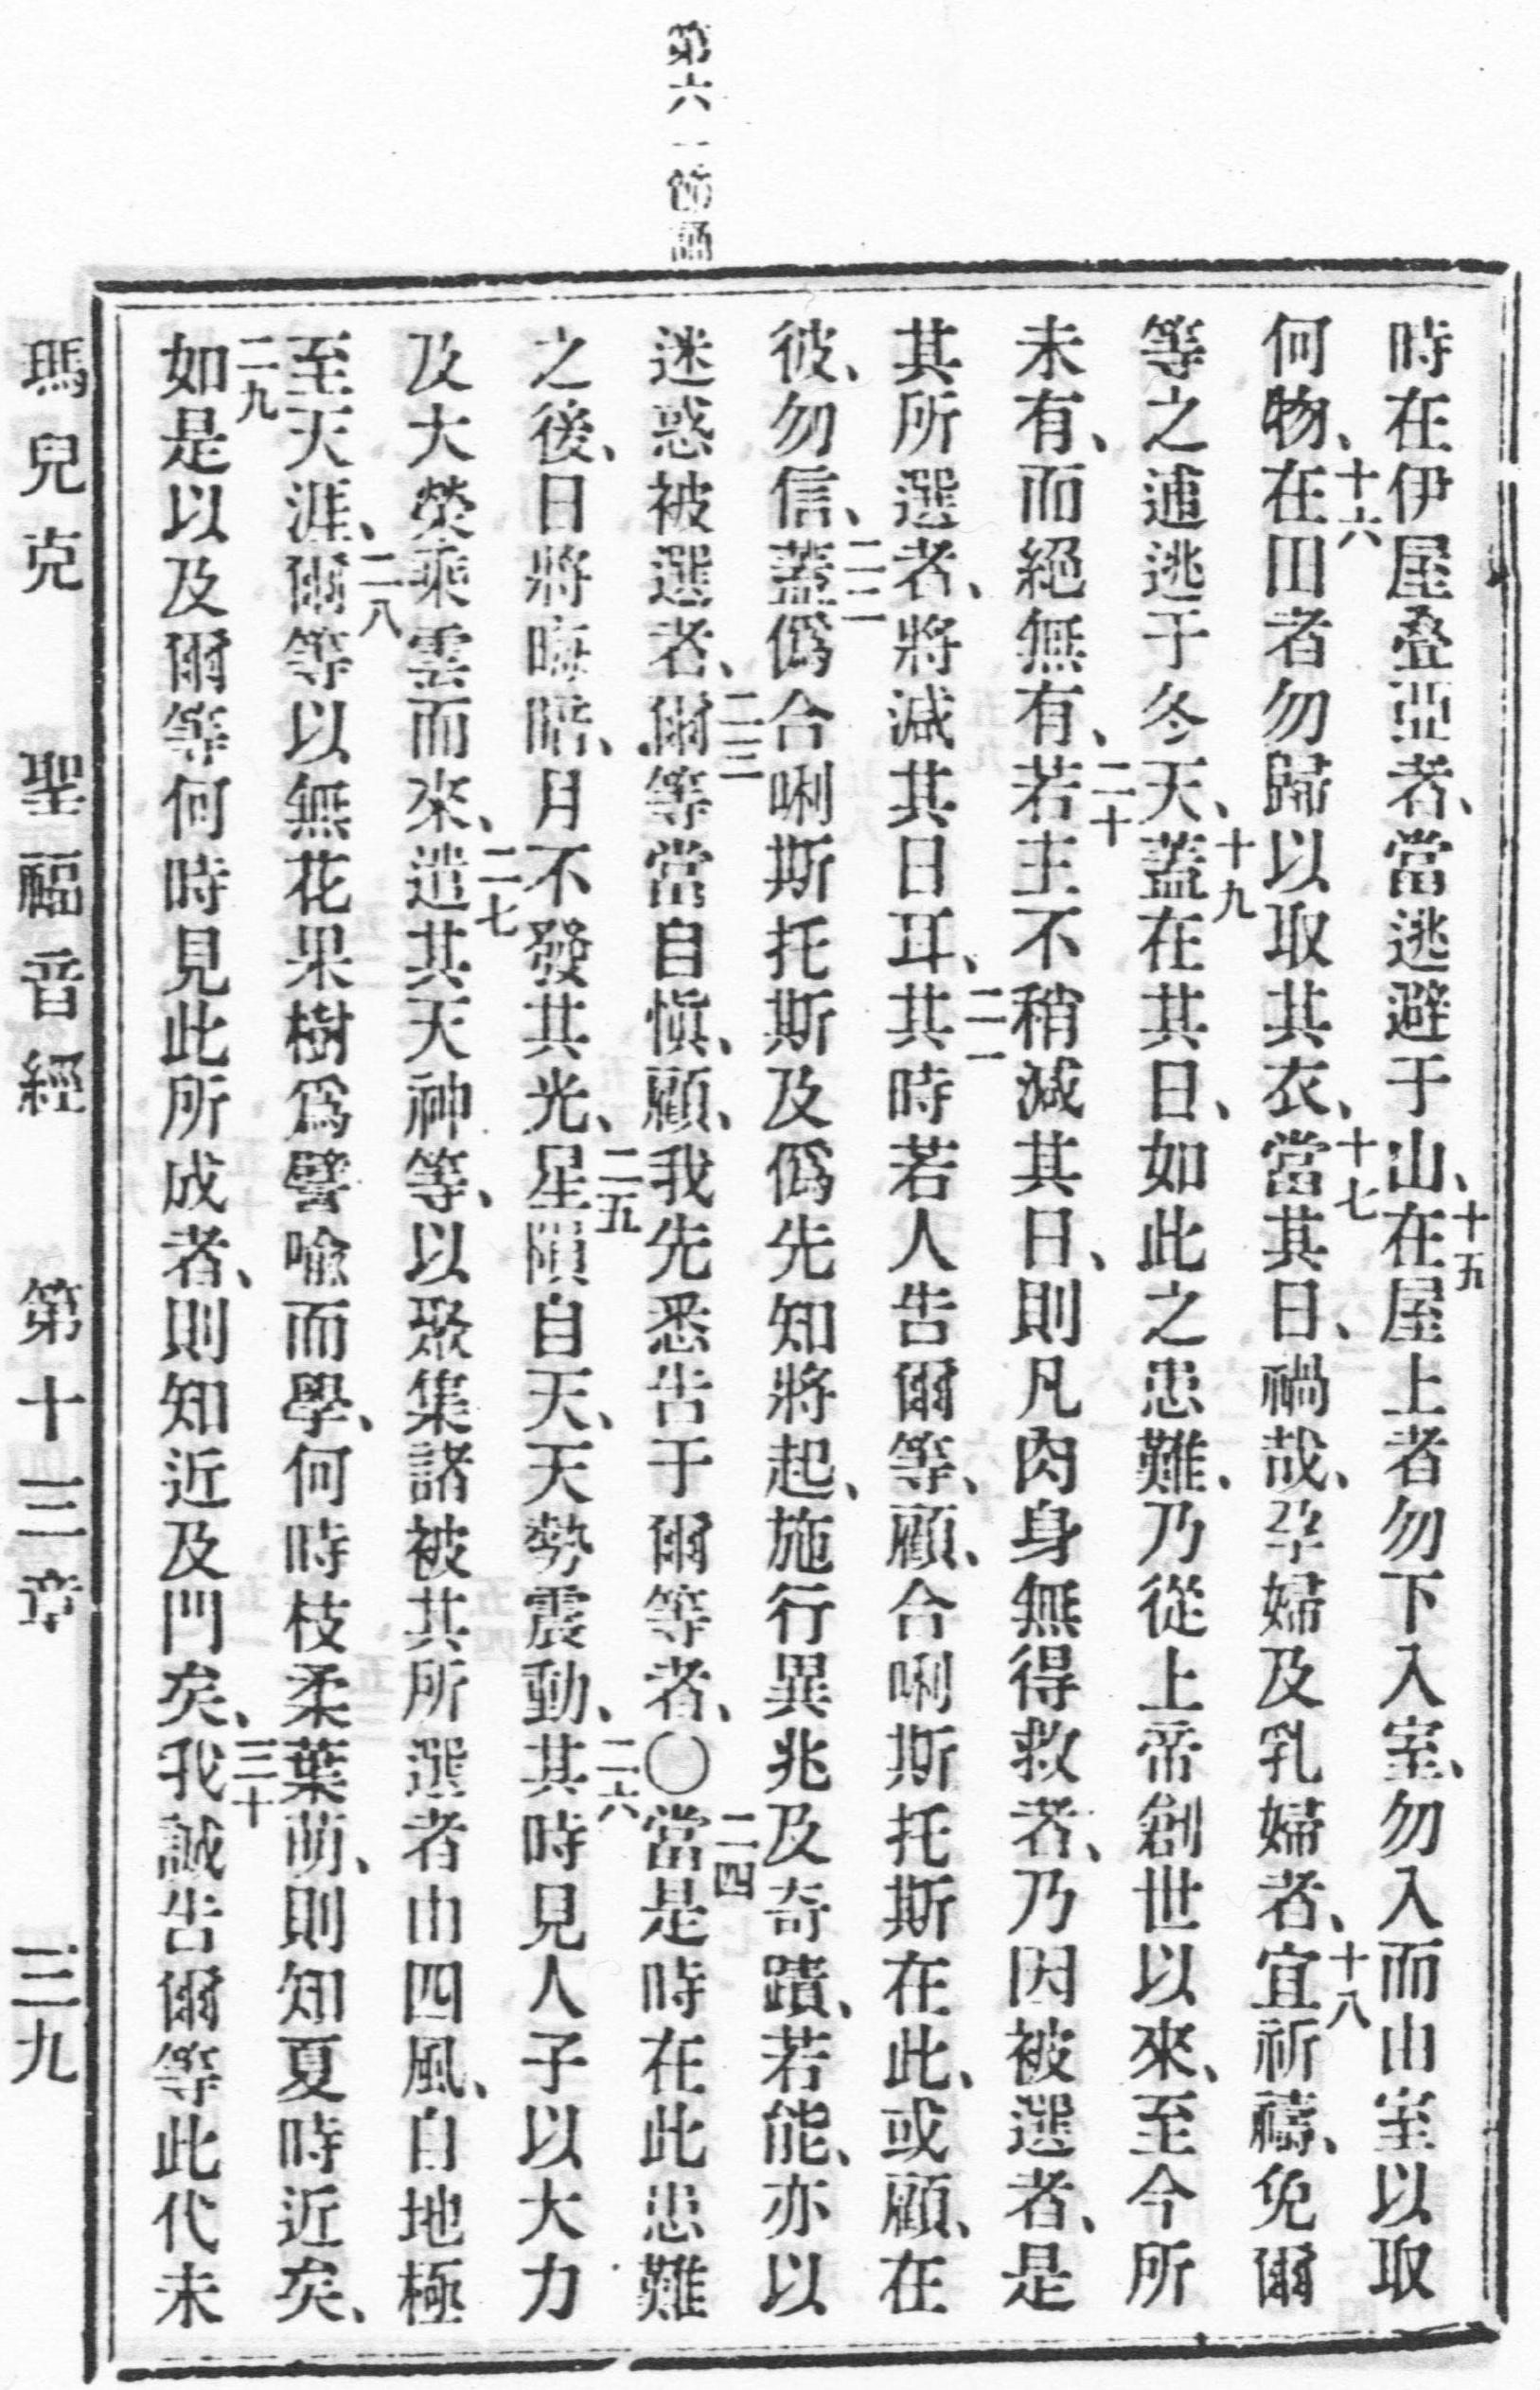 第六一節誦
時在伊屋叠亞者、當逃避于山、十五在屋上者勿下入室、勿入而由室以取
何物、十六在田者勿歸以取其衣、十七當其日、禍哉、孕婦及乳婦者、十八宜祈禱、免爾
等之逋逃于冬天、十九蓋在其日、如此之患難、乃從上帝創世以來、至今所
未有、而絕無有、二十若主不稍減其日、則凡肉身無得救者、乃因被選者、是
其所選者、將減其日耳、二一其時若人告爾等、顧、合唎斯托斯在此、或顧、在
彼、勿信、二二蓋僞合唎斯托斯及僞先知將起、施行異兆及奇蹟、若能、亦以
迷惑被選者、二三爾等當自愼、顧、我先悉告于爾等者、〇二四當是時在此患難
之後、日將晦暗、月不發其光、二五星隕自天、天勢震動、二六其時見人子以大力
及大榮乘雲而來、二七遣其天神等、以聚集諸被其所選者由四風、自地極
至天涯、二八爾等以無花果樹爲譬喻而學、何時枝柔葉萌、則知夏時近矣、
二九如是以及爾等何時見此所成者、則知近及門矣、三十我誠告爾等此代未
瑪兒克 聖福音經 第十三章 三九